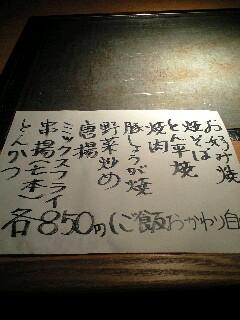 お好み焼
焼そば
とん平焼
焼肉
豚しょうが焼
野菜炒め
唐揚
ミックスフライ
串揚(七本)
とんかつ
各850円(ご飯おかわり自